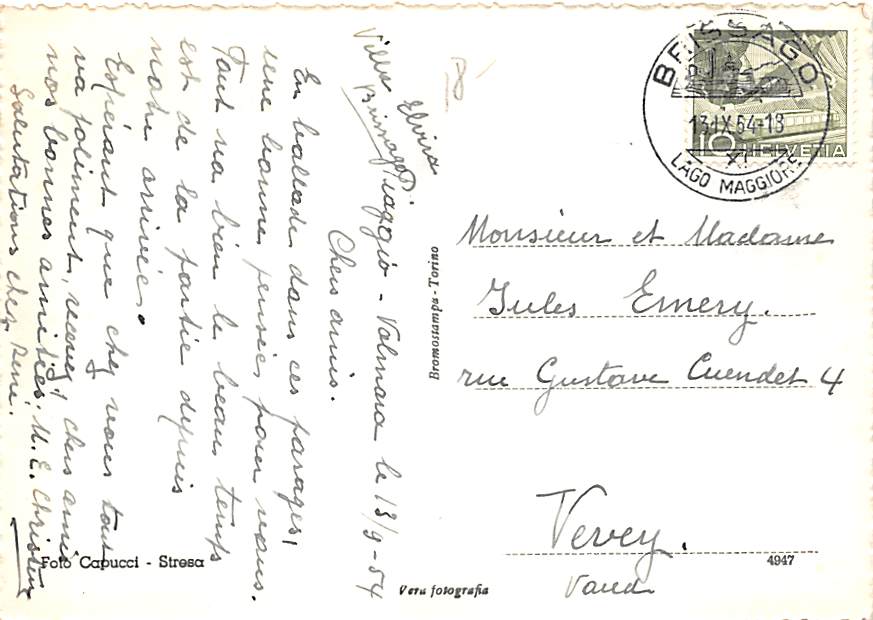 Villa Elvira
Brissago
Piaggio - Valmara le 13/9-54
Chers amis.
En ballade dans ces parages,
une bonne pensée pour vous.
Tout va bien le beau temps
est de la partie depuis
notre arrivée.
Espérant que chez vous tout
va joliment, recevez, chers amis
nos bonnes amitiés. M. E. Christen
Salutations chez René.
BRISSAGO
13.IX.54-18
LAGO MAGGIORE
10 HELVETIA
Monsieur et Madame
Jules Emery.
rue Gustave Cuendet 4
Vevey.
Vaud
Bromostampa - Torino
Foto Capucci - Stresa
Vera fotografia
4947